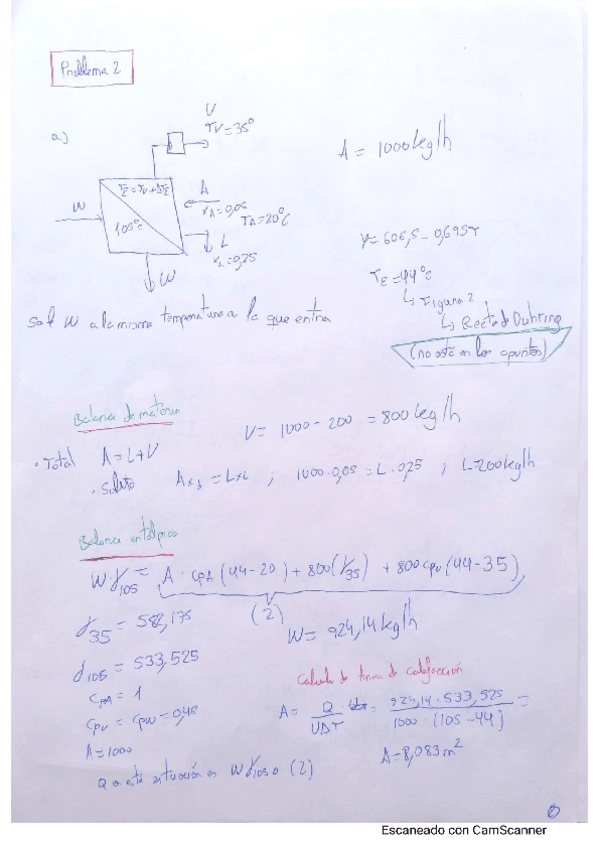 Problema 2
a)
V
TV=35°
A = 1000 kg/h
TE = TV+ΔTE
W
105°C
A
xA=0,05
TA=20°C
L
xL=0,25
W
γ = 606,5 - 0,695T
TE=44°C
↳ Figura 2
↳ Recta de Duhring
(no está en los apuntes)
Sale W a la misma temperatura a la que entra
Balance de materia
V = 1000 - 200 = 800 kg/h
· Total A = L+V
· Soluto A xA = L·xL ; 1000·0,05 = L·0,25 ; L=200 kg/h
Balance entálpico
W·γ105 = A·cpA (44-20) + 800(γ35) + 800 cpv (44-35)
(2)
γ35 = 582,175
W = 924,14 kg/h
γ105 = 533,525
cpA = 1
cpv = cpw = 0,45
A=1000
Q en esta situación es W γ105 o (2)
Calculo de área de calefacción
A = Q / UΔT = 924,14 · 533,525 / 1000 · (105-44) =
A = 8,083 m²
Escaneado con CamScanner